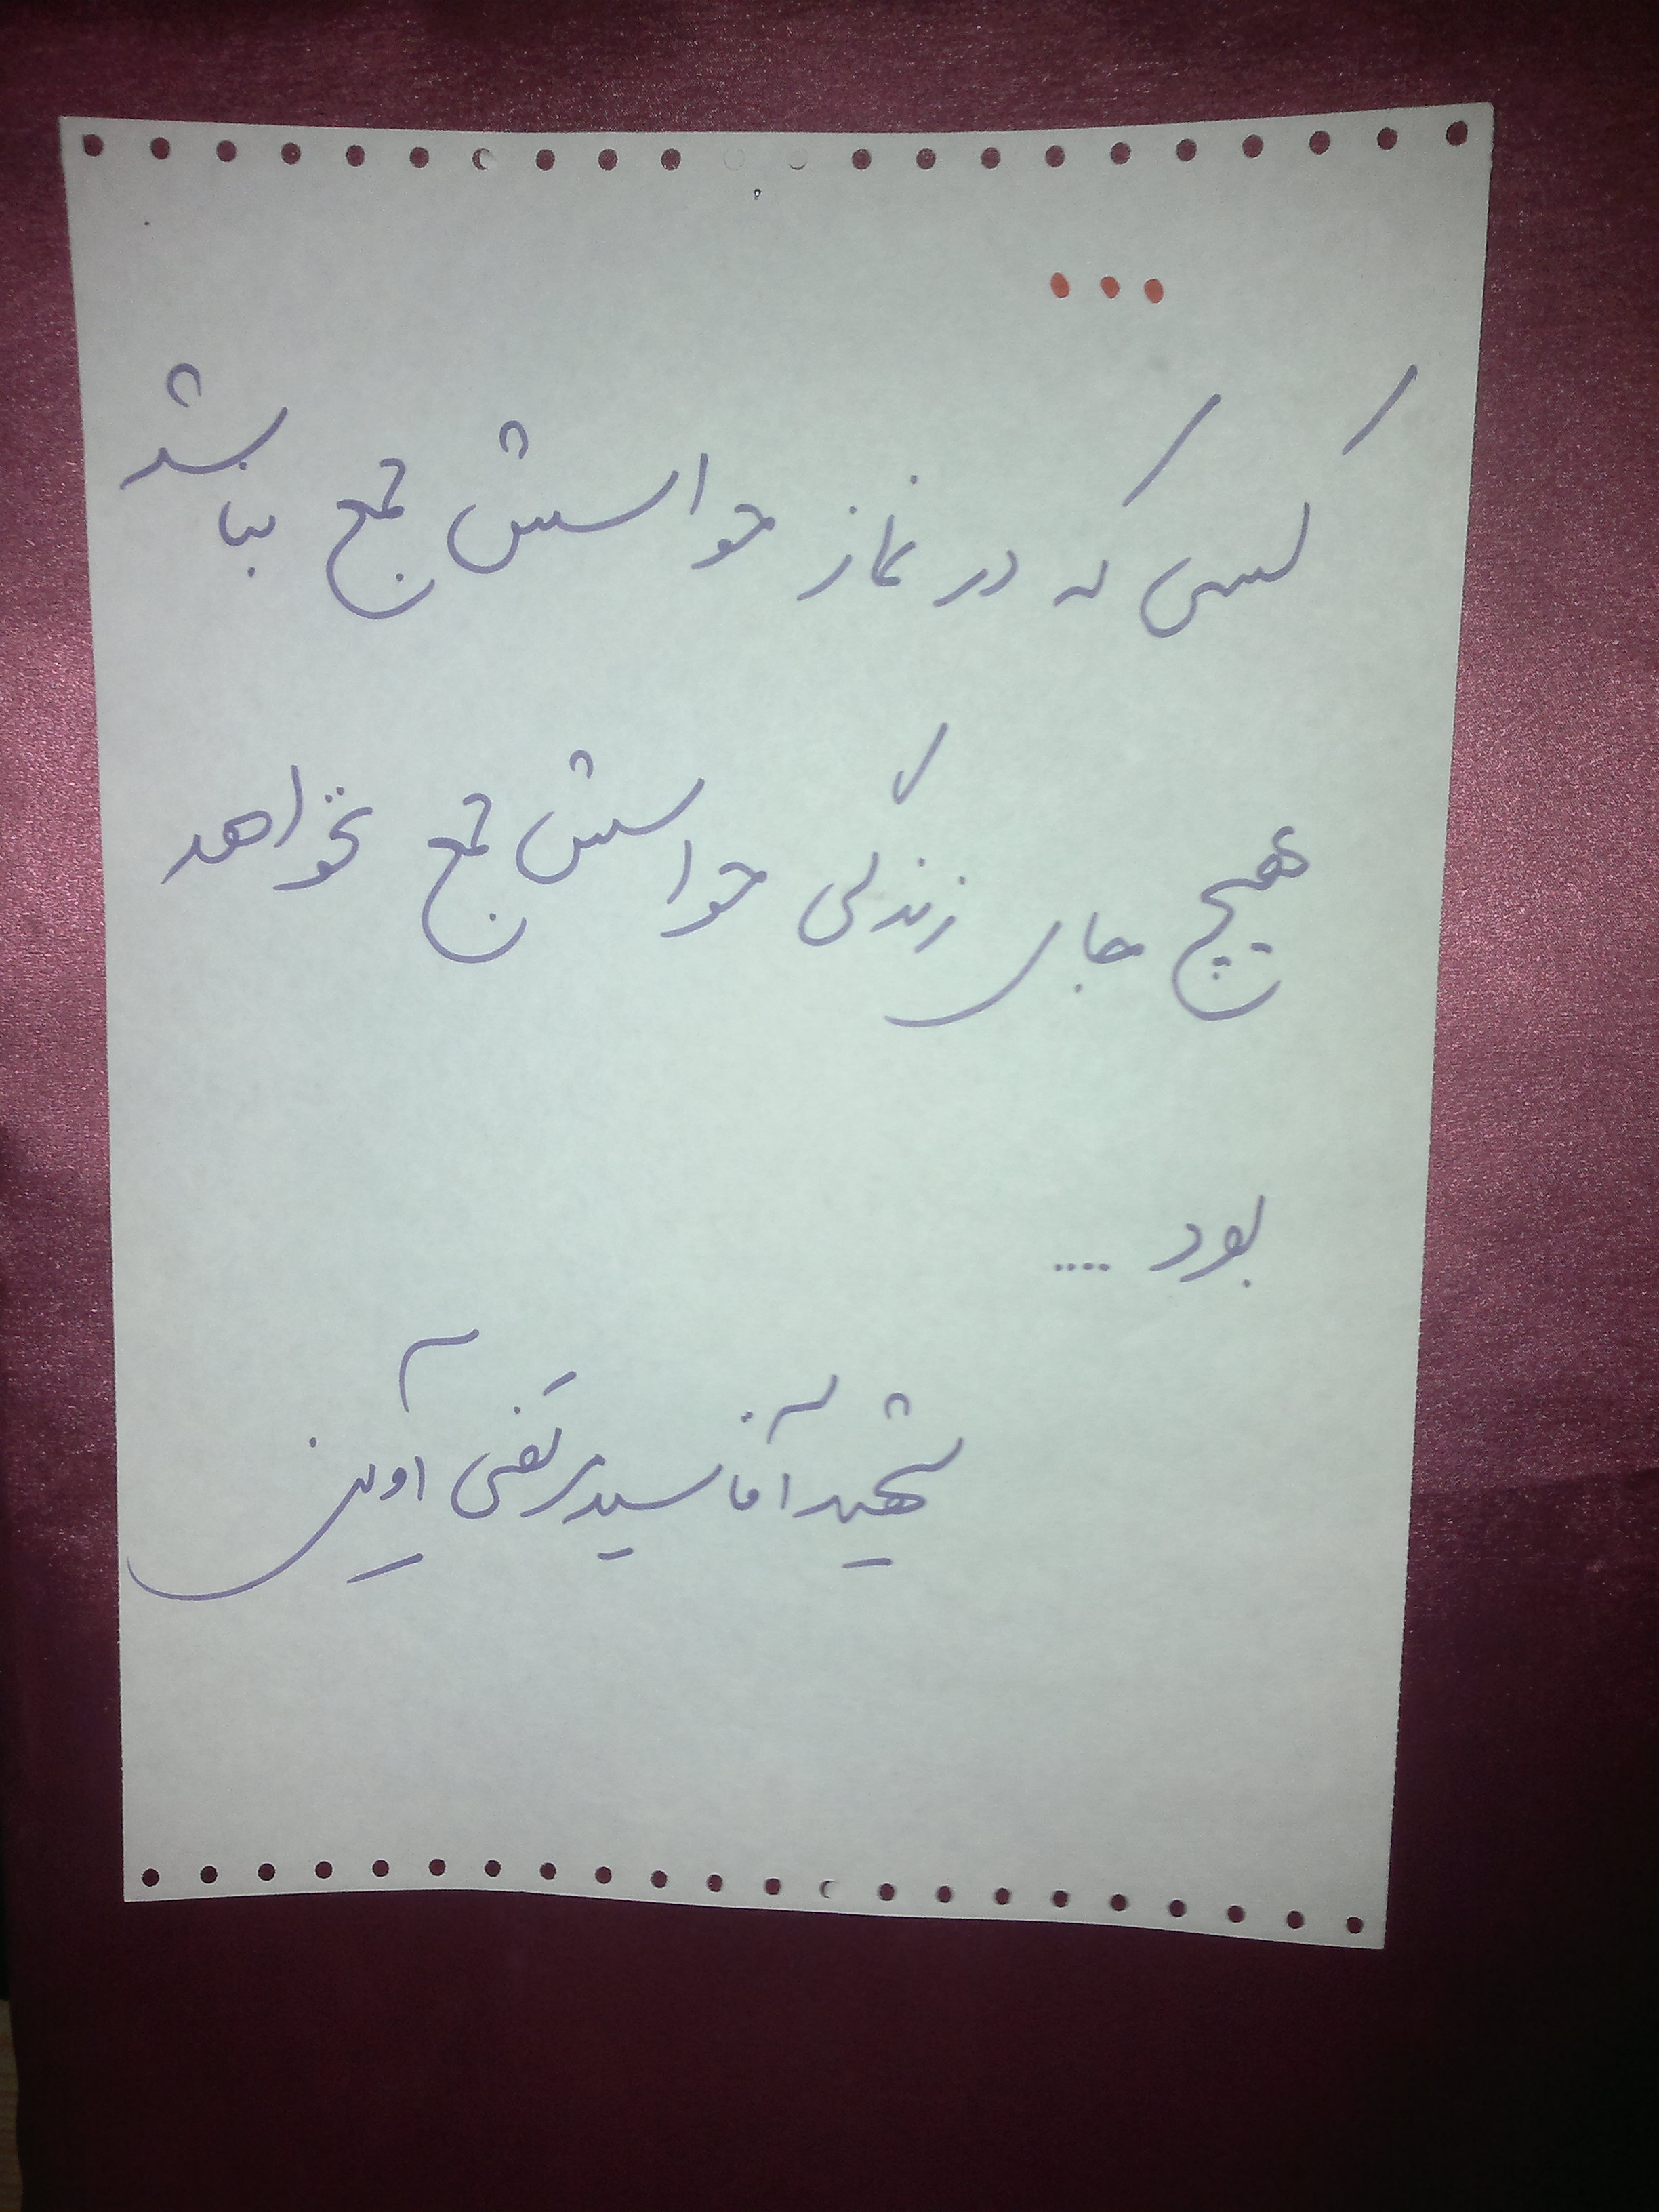 ...
کسی که در نماز حواسش جمع نباشد
هیچ جای زندگی حواسش جمع نخواهد
بود ....
شهید آقا سید مرتضی آوینی